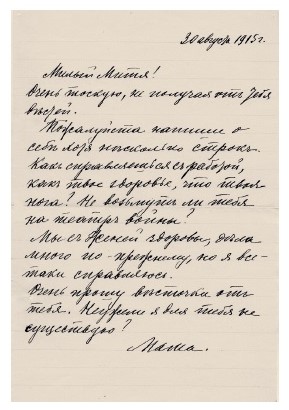 30 августа 1915 г.
Милый Митя!
Очень тоскую, не получая отъ тебя
вѣстей.
Пожалуйста напиши о
себѣ хотя нѣсколько строкъ.
Какъ справляешься съ работой,
какъ твое здоровье, что твоя
нога? Не возьмутъ ли тебя
на театръ войны?
Мы съ Женей здоровы, дѣла
много по-прежнему, но я все-
таки справляюсь.
Очень прошу вѣсточки отъ
тебя. Неужели я для тебя не
существую?
Мама.